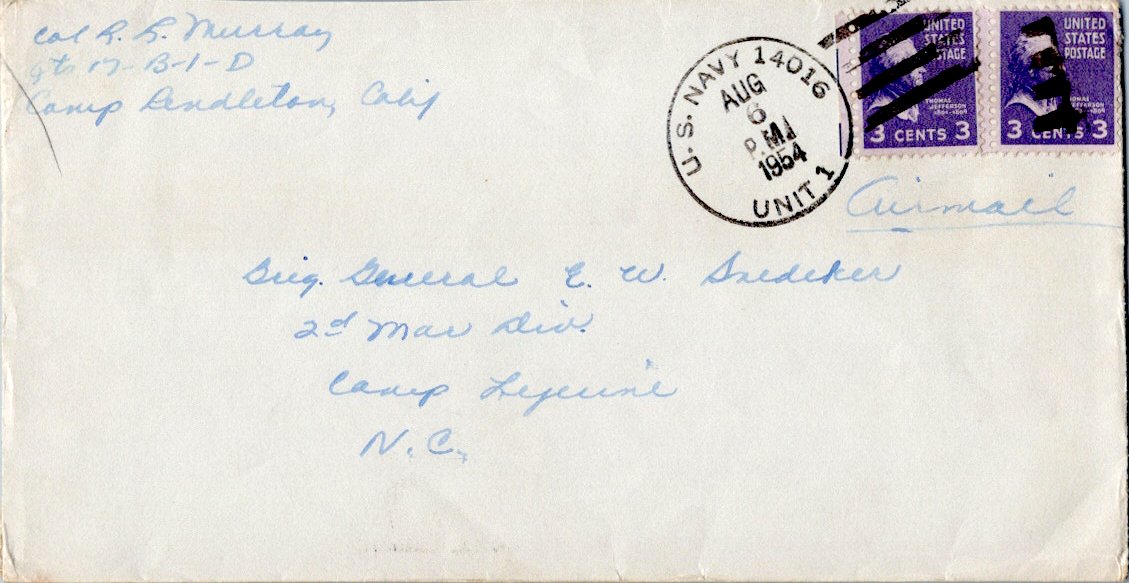 Col R. L. Murray
Qts 17-B-1-D
Camp Pendleton, Calif
U.S. NAVY 14016
AUG
6
P.M.
1954
UNIT 1
UNITED
STATES
POSTAGE
THOMAS
JEFFERSON
3 CENTS 3
UNITED
STATES
POSTAGE
THOMAS
JEFFERSON
3 CENTS 3
Airmail
Brig. General E. W. Snedeker
2d Mar Div.
Camp Lejeune
N.C.